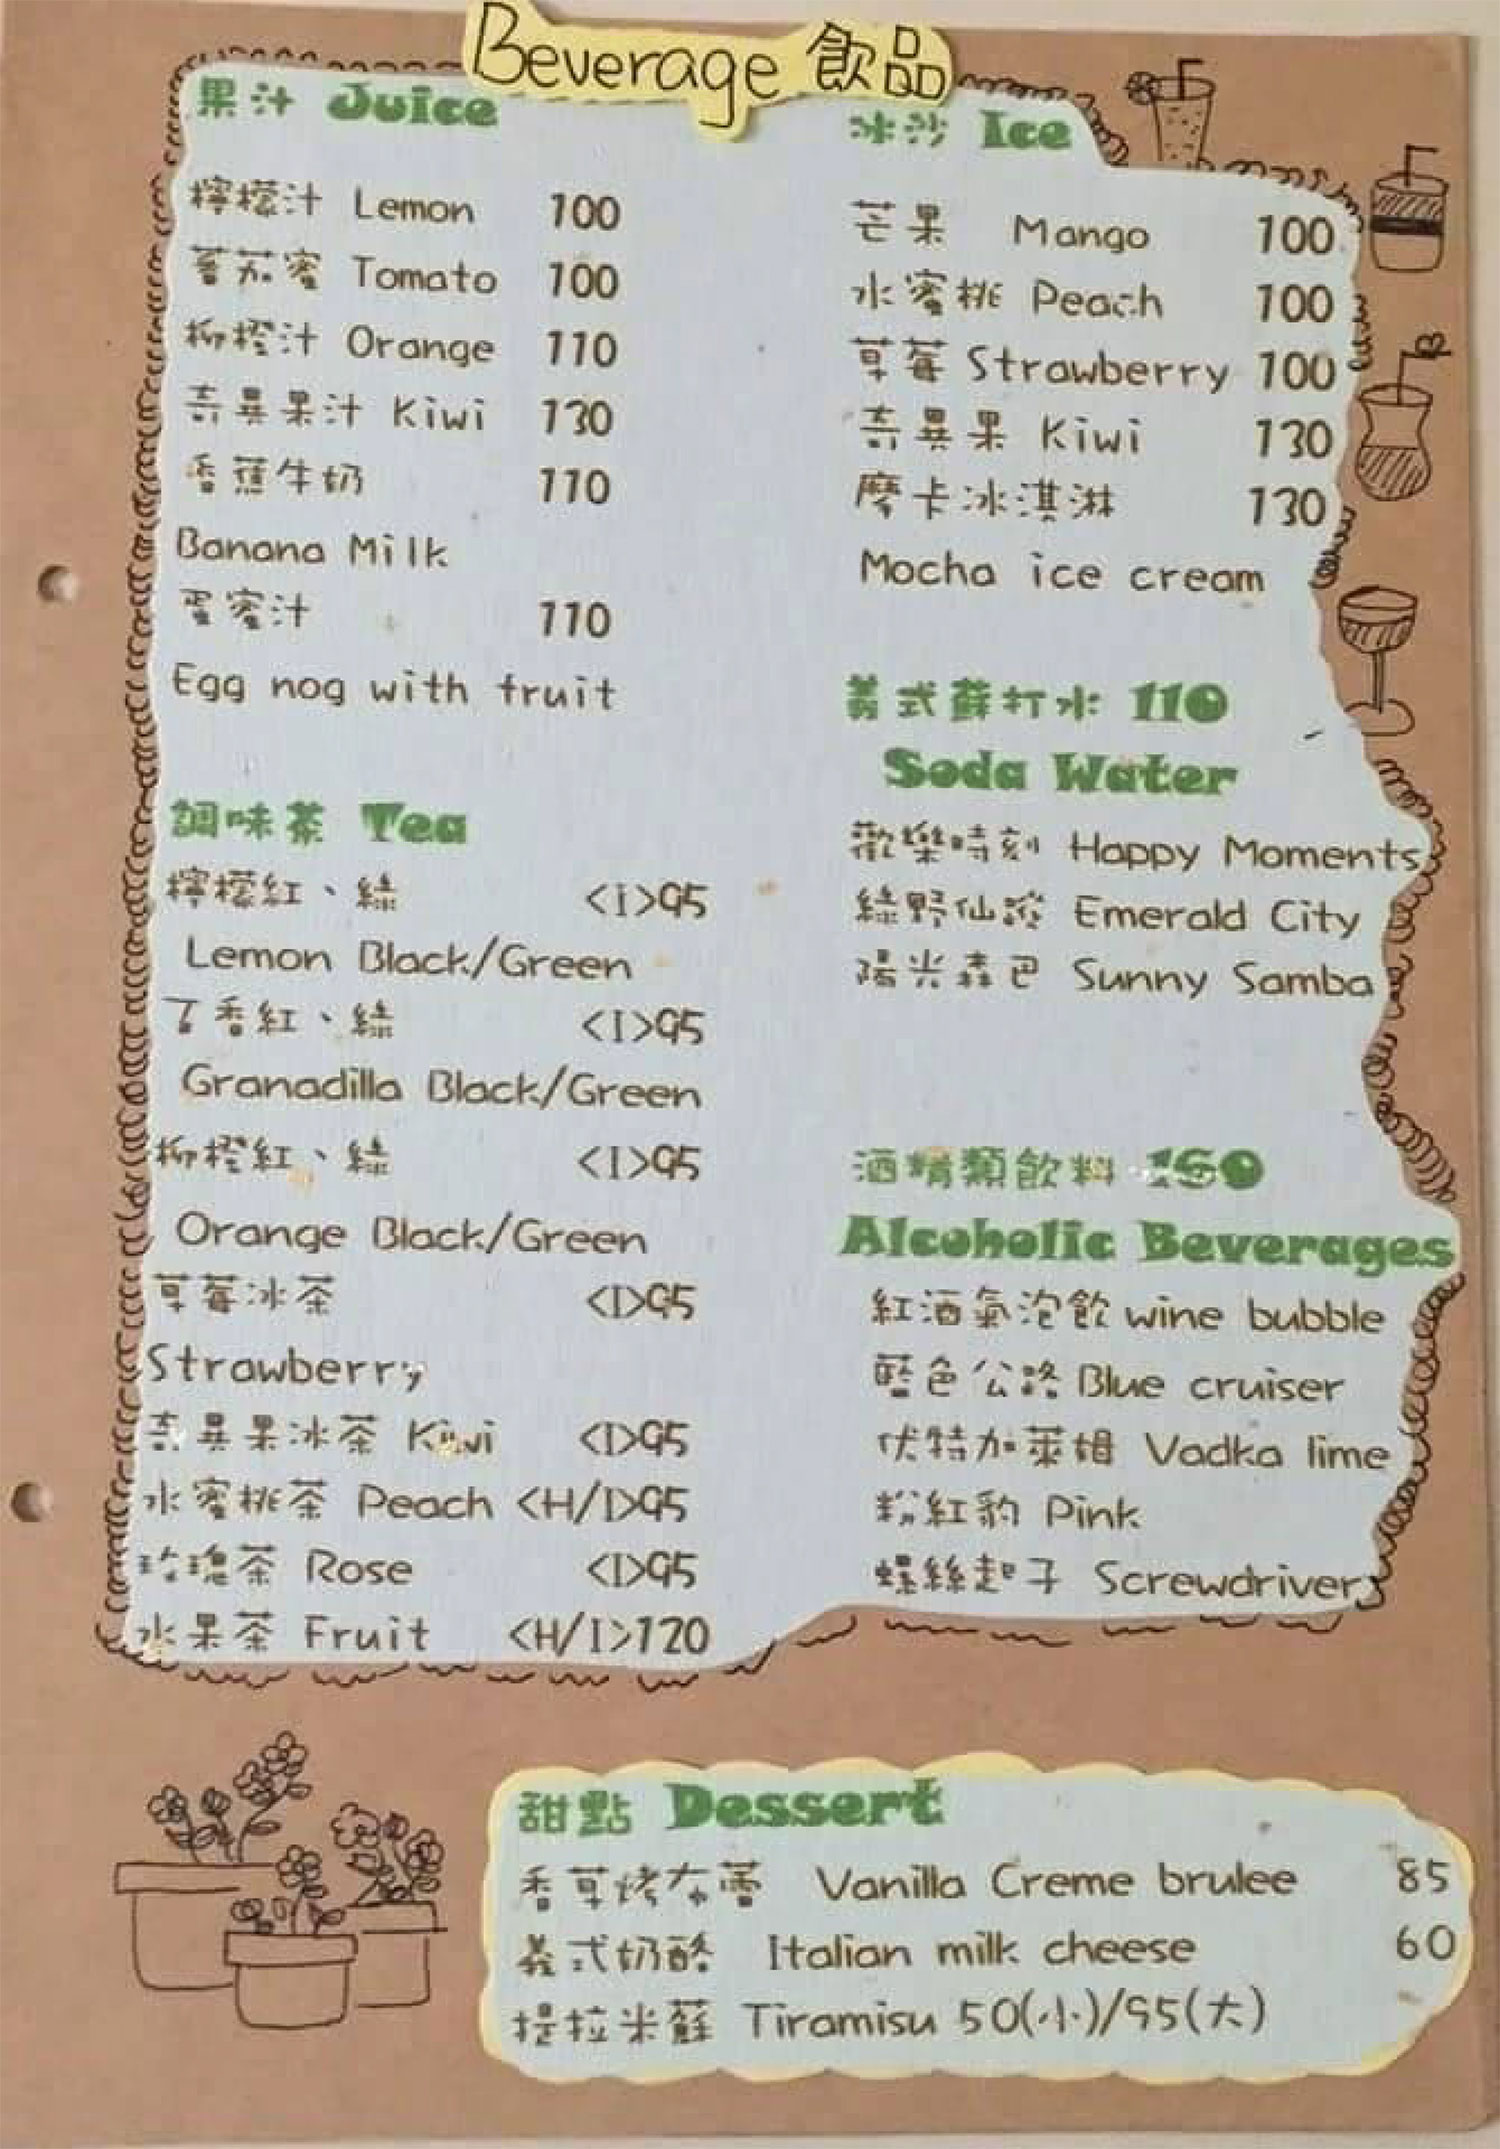 Beverage 飲品
果汁 Juice
檸檬汁 Lemon 100
蕃茄蜜 Tomato 100
柳橙汁 Orange 110
奇異果汁 Kiwi 130
香蕉牛奶 110
Banana Milk
蛋蜜汁 110
Egg nog with fruit
調味茶 Tea
檸檬紅、綠 <I>95
Lemon Black/Green
百香紅、綠 <I>95
Granadilla Black/Green
柳橙紅、綠 <I>95
Orange Black/Green
草莓冰茶 <I>95
Strawberry
奇異果冰茶 Kiwi <I>95
水蜜桃茶 Peach <H/I>95
玫瑰茶 Rose <I>95
水果茶 Fruit <H/I>120
冰沙 Ice
芒果 Mango 100
水蜜桃 Peach 100
草莓 Strawberry 100
奇異果 Kiwi 130
摩卡冰淇淋 130
Mocha ice cream
義式蘇打水 110
Soda Water
歡樂時刻 Happy Moments
綠野仙蹤 Emerald City
陽光森巴 Sunny Samba
酒精類飲料 150
Alcoholic Beverages
紅酒氣泡飲 wine bubble
藍色公路 Blue cruiser
伏特加萊姆 Vadka lime
粉紅豹 Pink
螺絲起子 Screwdriver
甜點 Dessert
香草烤布蕾 Vanilla Creme brulee 85
義式奶酪 Italian milk cheese 60
提拉米蘇 Tiramisu 50(小)/95(大)